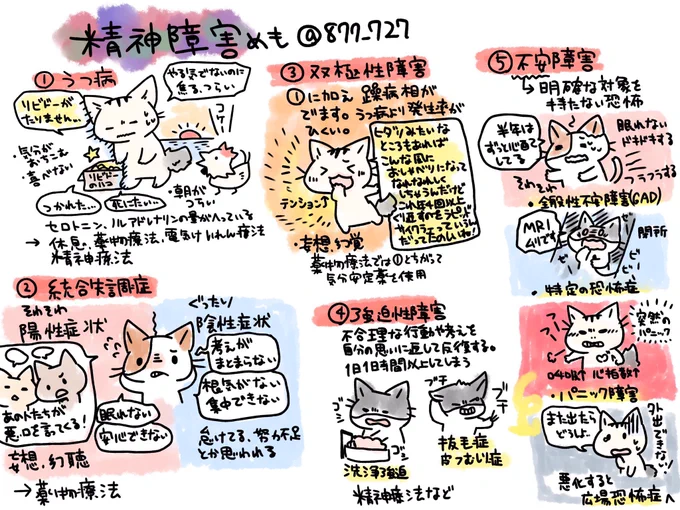 精神障害めも @877_727
① うつ病
リビドーが
たりません…
やる気でないのに
焦る、つらい
コケーッ
・気分が
おちこむ
・喜べない
リビドー
のハコ
つかれた…
死にたい…
・朝が
つらい
セロトニン、ノルアドレナリンの量がへっている
→ 休息、薬物療法、電気けいれん療法
精神療法
② 統合失調症
そわそわ
陽性症状
あのひとたちが
悪口を言ってくる!
眠れない
安心できない
妄想、幻聴
→ 薬物療法
ぐったり
陰性症状
考えが
まとまらない
根気がない
集中できない
怠けてる、努力不足
とか思われる
③ 双極性障害
①に加え 躁病相が
でます。うつ病より発生率が
ひくい。
テンション↑
ヒダリみたいな
ところもあれば
こんな風に
おしゃべりになって
なんかねむく
しちゃうんだけど
これ年4回以上
くり返すのをラピッド
サイクラーっていうん
だってたのしいね!
・妄想、幻覚
薬物療法では①とちがって
気分安定薬を使用
④ 強迫性障害
不合理な行動や考えを
自分の思いに反して反復する。
1日1時間以上してしまう
ゴシ
ゴシ
洗浄強迫
ブチ
ブチ
抜毛症
皮フむしり症
精神療法など
⑤ 不安障害
→ 明確な対象を
持たない恐怖
半年は
ずっと心配
してる
眠れない
ドキドキする
フラフラする
そわそわ
・全般性不安障害(GAD)
MRI
ムリです
閉所
ビー
ビー
・特定の恐怖症
突然の
パニック
心拍数↑
・パニック障害
また出たら
どうしよ…
外出できない!
悪化すると
広場恐怖症へ